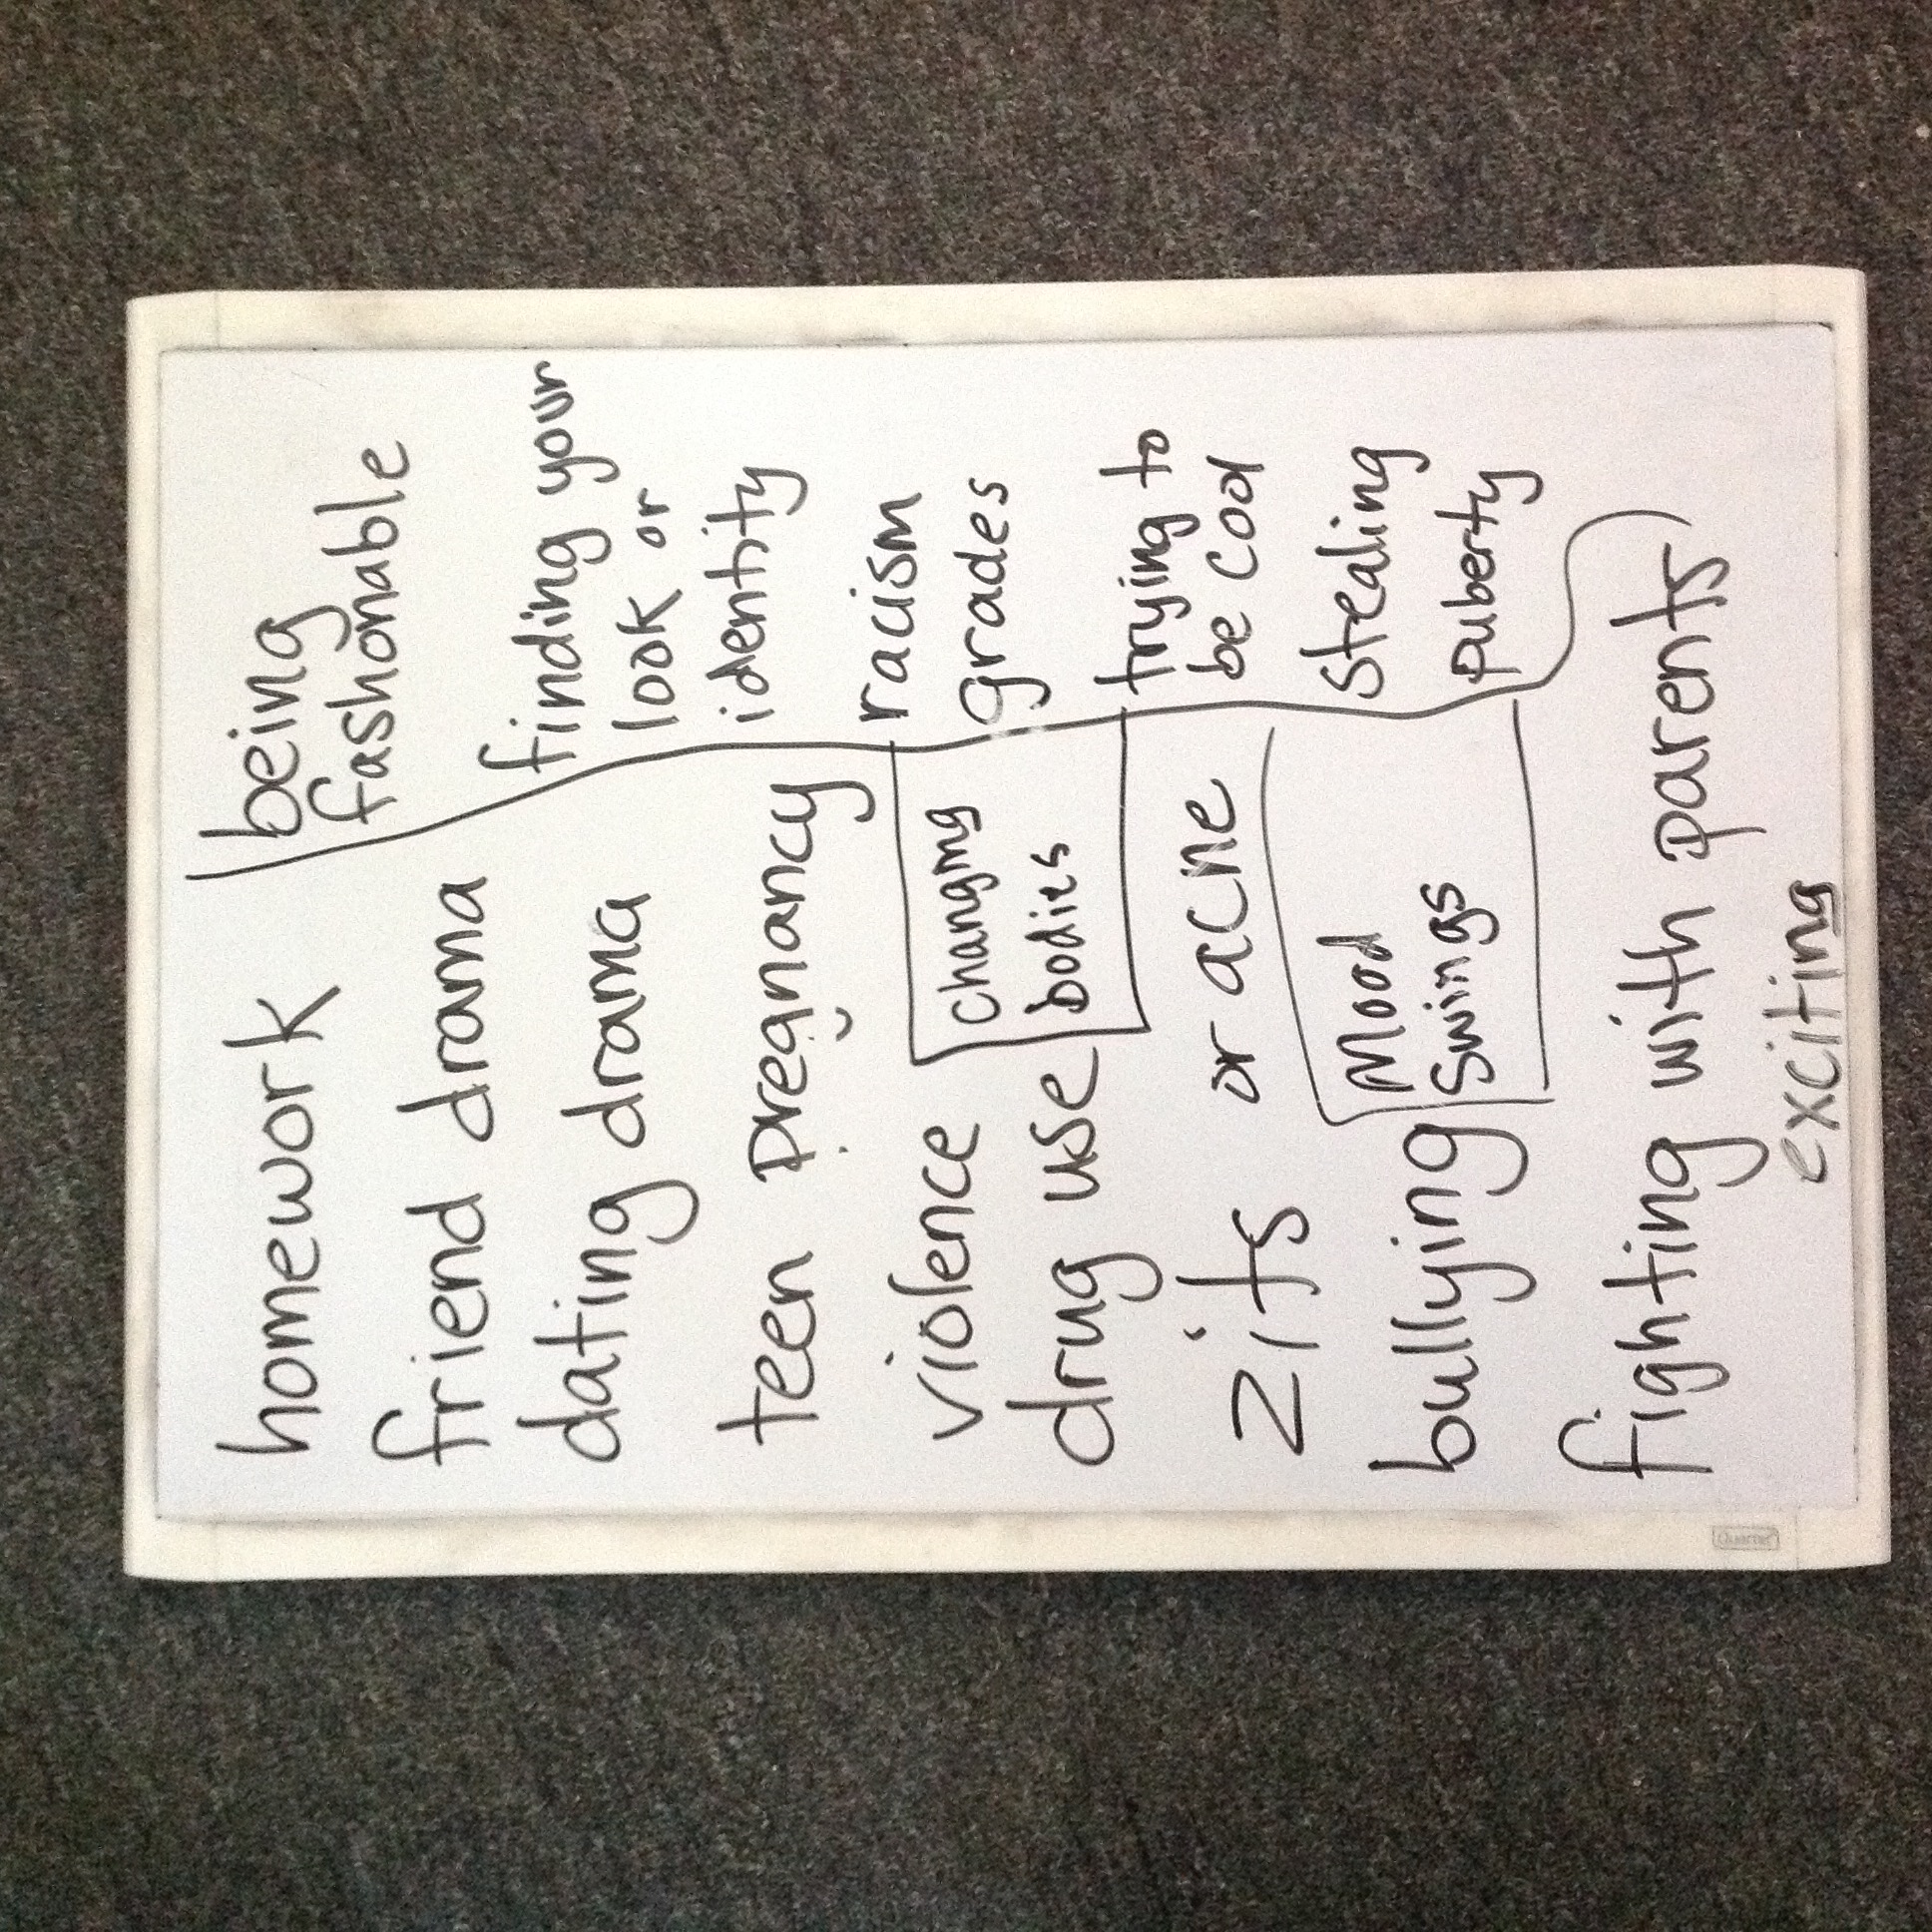 homework
friend drama
dating drama
teen pregnancy
violence
drug use
zits or acne
bullying
fighting with parents
exciting
changing
bodies
Mood
Swings
being
fashionable
finding your
look or
identity
racism
grades
trying to
be cool
Stealing
puberty
Quartet